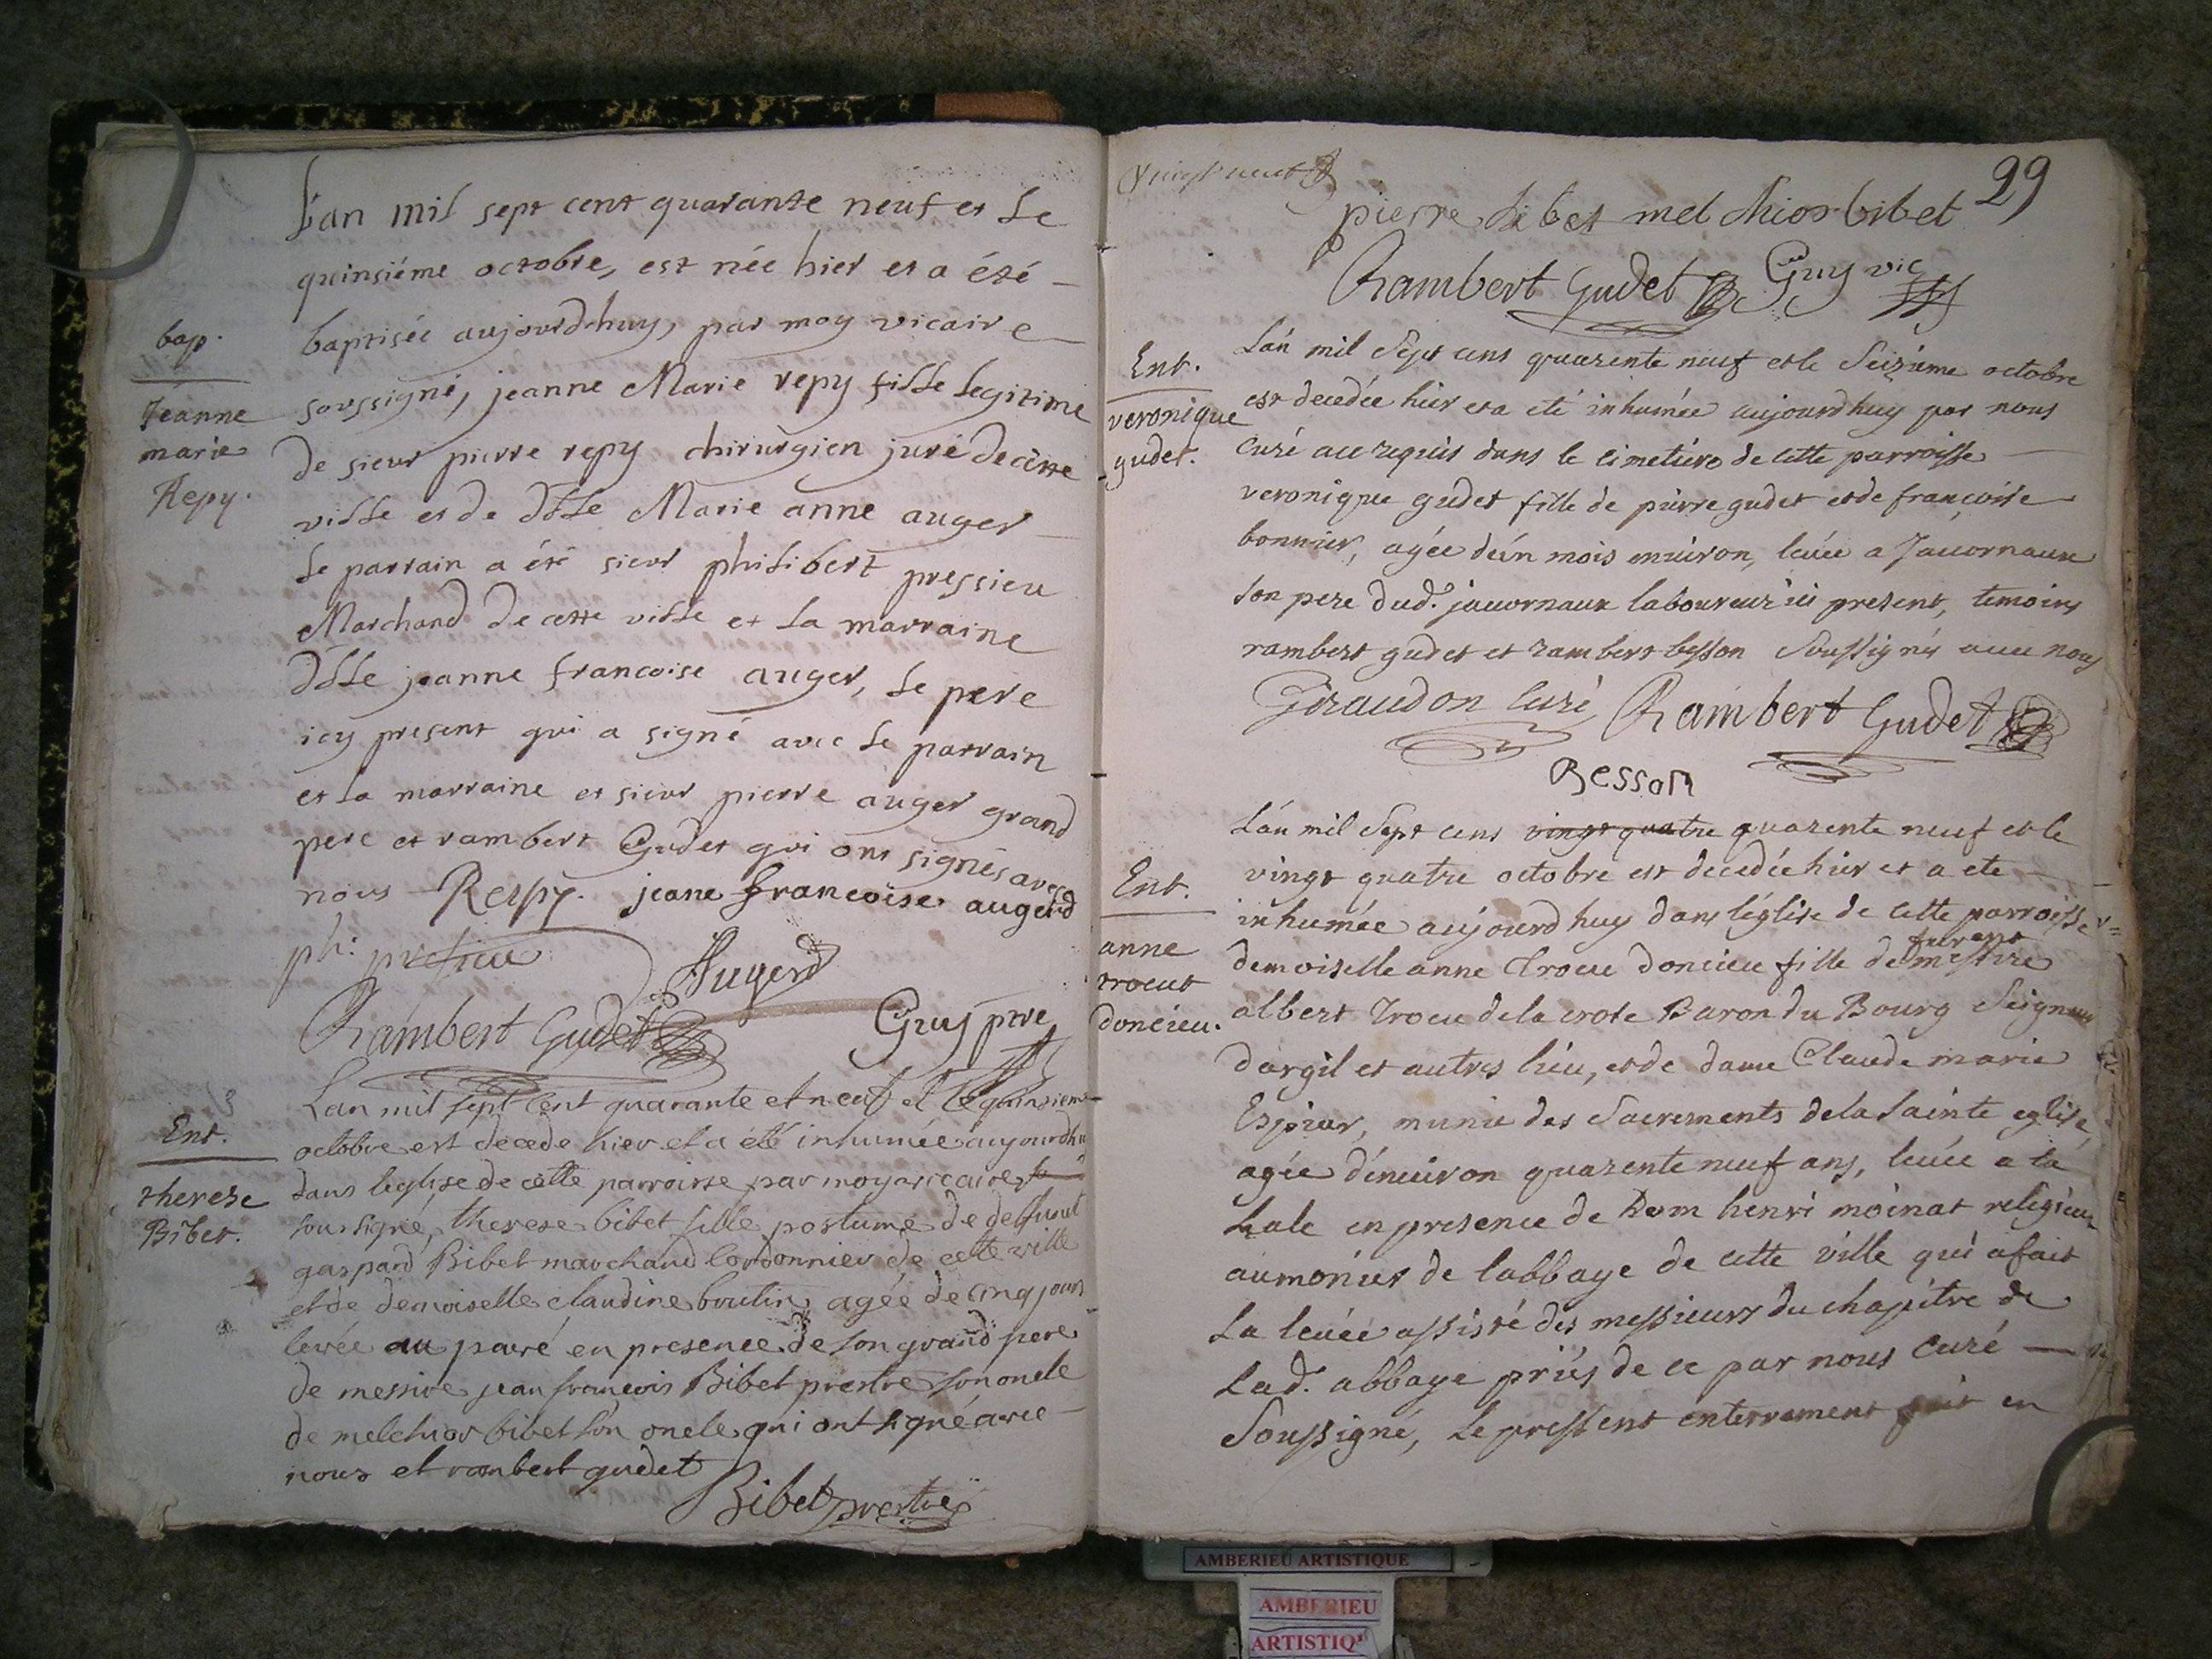 L'an mil sept cent quarante neuf et le
quinsiéme octobre, est née hier et a été
baptisée aujourd'huy, par moy vicaire
bap.
Jeanne
marie
Repy.
soussigné, jeanne Marie repy fille legitime
de sieur pierre repy chirurgien juré de cette
ville et de dlle Marie anne auger
le parrain a été sieur philibert pressieu
Marchand de cette ville et la marraine
dlle jeanne francoise auger, le pere
icy present qui a signé avec le parrain
et la marraine et sieur pierre auger grand
pere et rambert Gudet qui ont signés avec
nous Repy. jeane francoise augerd
ph: presieu
Augerd
Rambert Gudet Guy ptre
Lan mil sept cent quarante et neuf et le quinsieme
Ent.
therese
Bibet.
octobre est decede hier et a été inhumée aujourdhu
dans leglise de cette parroisse par moy vicaire
sousigné, therese bibet fille postume de deffunt
gaspard Bibet marchand Cordonnier de cette ville
et de demoiselle claudine boulin agée de cinq jours
levée au pavé en presence de son grand pere
de messire jean francois Bibet prestre son oncle
de melchior bibet son oncle qui ont signé avec
nous et rambert gudet
Bibet prestre
vingt neuf
29
pierre bibet mel chior bibet
Rambert Gudet Guy vic
Ent.
veronique
gudet.
L'an mil Sept cens quarente neuf et le Seizieme octobre
est decedée hier et a eté inhumée aujourdhuy par nous
Curé dans le cimetiere de cette parroisse
veronique gudet fille de pierre gudet et de francoise
bonnier, agée d'un mois enuiron, leuée a Jauornaux
son pere dud. jauornaux laboureur ici present, temoins
rambert gudet et rambert besson Soussignés auec nous
Giraudon Curé Rambert Gudet
Besson
L'an mil Sept cens vingt quatre quarente neuf et le
Ent.
anne
trocut
doncieu.
vingt quatre octobre est decedée hier et a ete
inhumée aujourdhuy dans l'église de cette parroisse
demoiselle anne trocu doncieu fille de messire
albert Trocu de la crose Baron du Bourg Seigneur
dargil et autres lieu, et de dame Claude marie
Espiar, munie des Sacrements de la Sainte eglise,
agée d'enuiron quarente neuf ans, leuée a la
hale en presence de Dom henri moinat religieux
aumonier de l'abbaye de cette ville qui a fait
la leuée assisté des messieurs du chapitre de
lad. abbaye priés de ce par nous Curé
Soussigné, le pressent enterrement fait en
AMBERIEU ARTISTIQUE
AMBERIEU
ARTISTIQ